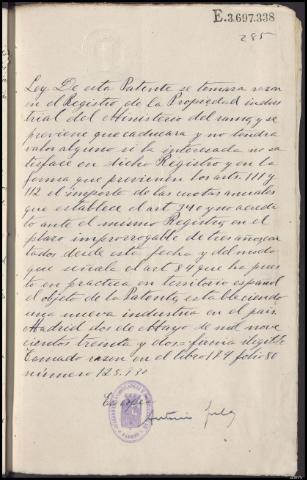 E.3.697.338
285
Ley. De esta Patente se tomara razon
en el Registro de la Propiedad indus
trial del Ministerio del ramo, y se
previene que caducara y no tendra
valor alguno si la interesada no sa
tisface en dicho Registro y en la
forma que previenen los arts. 111 y
112 el importe de las cuotas anuales
que establece el art 240 y no acredi
ta ante el mismo Registro, en el
plazo improrrogable de tres años, con
tados desde esta fecha y del modo
que señala el art 84 que ha pues
to en practica en territorio español
el objeto de la Patente, estableciendo
una nueva industria en el pais.
Madrid dos de Mayo de mil nove
cientos treinta y dos = firma ilegible
Tomado razon en el libro 179 folio 80
numero 125.930
Es copia
Antonio